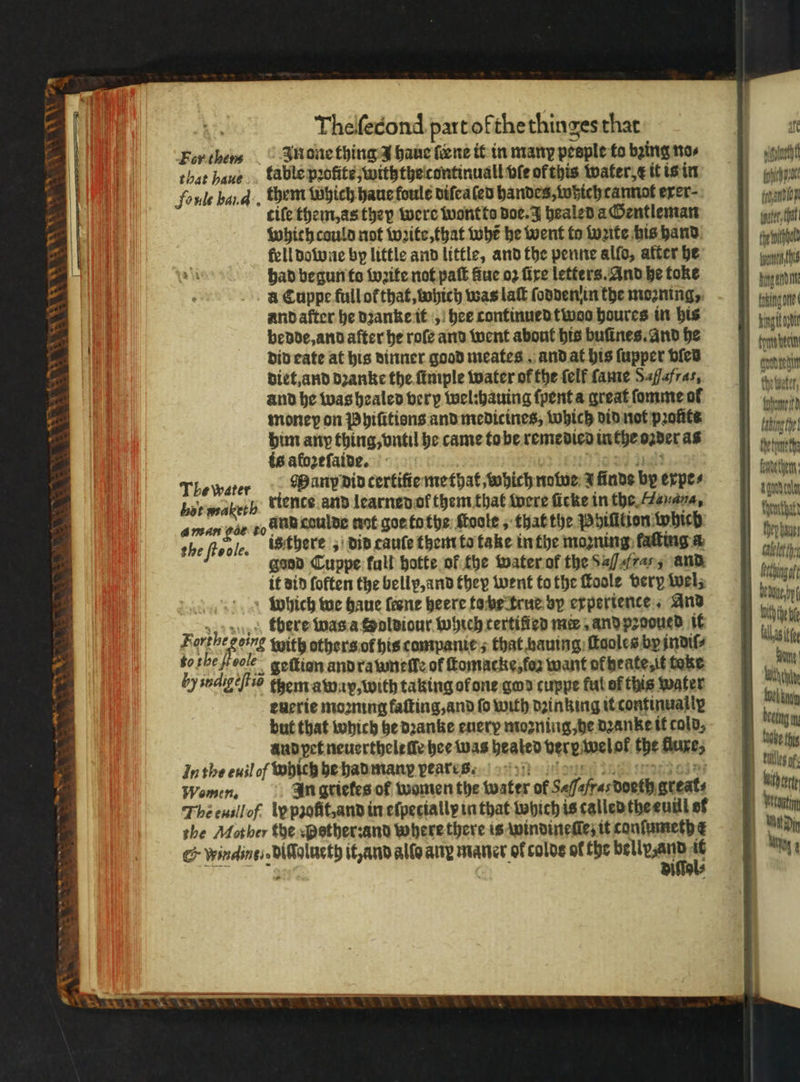 The second part of the thinges that
For them
that haue
foule hand.
In one thing I haue séene it in many people to bring no-
table profite, with the continuall vse of this water, & it is in
them which haue foule diseased handes, which cannot exer-
cise them, as they were wont to doe. I healed a Gentleman
which could not write, that whē he went to write his hand
fell downe by little and little, and the penne also, after he
had begun to write not past fiue or sixe letters. And he toke
a Cuppe full of that, which was last sodden, in the morning,
and after he dranke it, hee continued twoo houres in his
bedde, and after he rose and went about his busines. And he
did eate at his dinner good meates. and at his supper vsed
diet, and dranke the simple water of the self same Sassafras,
and he was healed very wel: hauing spent a great somme of
money on Phisitions and medicines, which did not profite
him any thing, vntil he came to be remedied in the order as
is aforesaide.
The water
hot maketh
a man goe to
the stoole.
Many did certifie me that, which nowe I finde by expe-
rience and learned of them that were sicke in the Hauana,
and coulde not goe to the stoole, that the Phisition which
is there, did cause them to take in the morning fasting a
good Cuppe full hotte of the water of the Sassafras, and
it did soften the belly, and they went to the stoole very wel,
which we haue séene heere to be true by experience. And
there was a Soldiour which certified mée, and prooued it
For the going
to the stoole
by indigestiō
with others of his companie, that hauing stooles by indis-
gestion and rawnesse of stomacke, for want of heate, it toke
them away, with taking of one good cuppe ful of this water
euerie morning fasting, and so with drinking it continually
but that which he dranke euery morning, he dranke it cold,
and yet neuerthelesse hee was healed very wel of the fluxe,
which he had many yeares.
In the euil of
Women.
The euill of
the Mother
& windines.
In griefes of women the water of Sassafras doeth great-
ly profit, and in especially in that which is called the euill of
the Mother: and where there is windinesse, it consumeth &
dissolueth it, and also any maner of colde of the belly, and it
dissol-